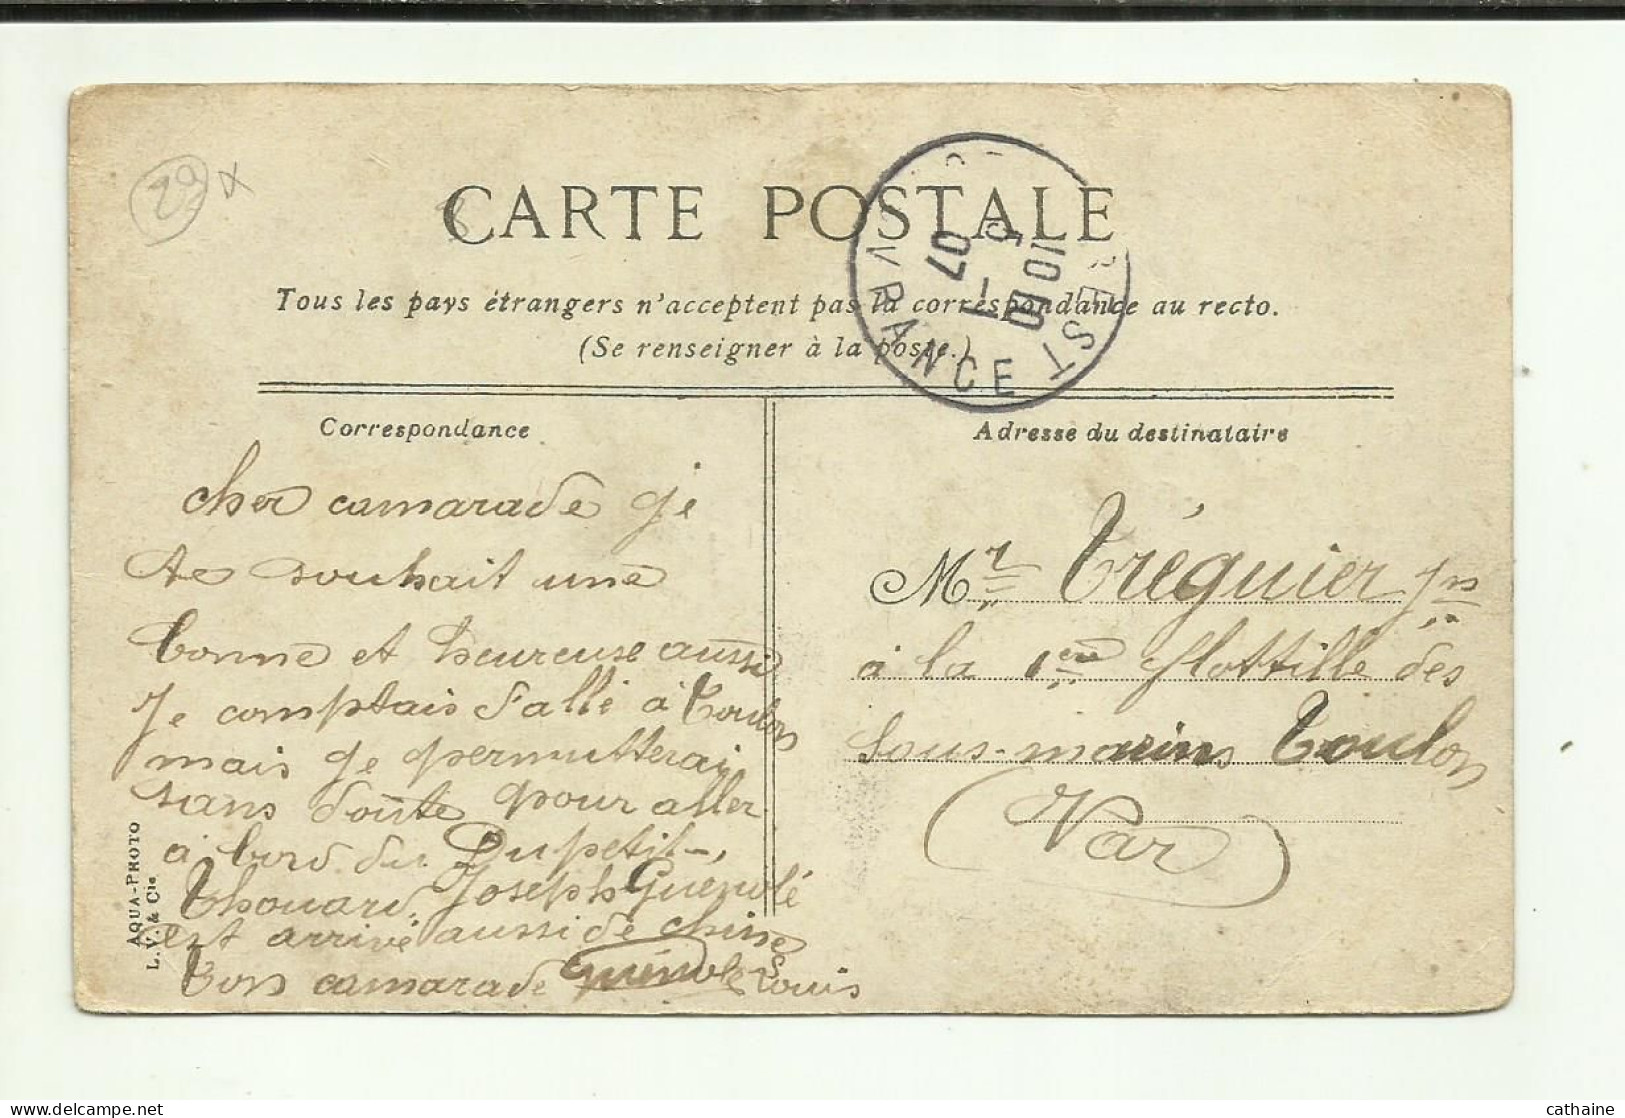 29 x
CARTE POSTALE
Tous les pays étrangers n'acceptent pas la correspondance au recto.
(Se renseigner à la poste.)
BREST
RECOUVRANCE
10 10
5 -1
07
Correspondance
cher camarade je
te souhait une
bonne et heureuse aussi
Je comptais d'allé à Toulon
mais je permutterai
sans doute pour aller
à bord du Dupetit-
Thouard, Joseph Guenolé
est arrivé aussi de chine
Ton camarade Guénolé Louis
Adresse du destinataire
Mr Tréguier
à la 1ere flottille des
sous-marins Toulon
(Var)
AQUA-PHOTO
L. V. & Cie
cathaine